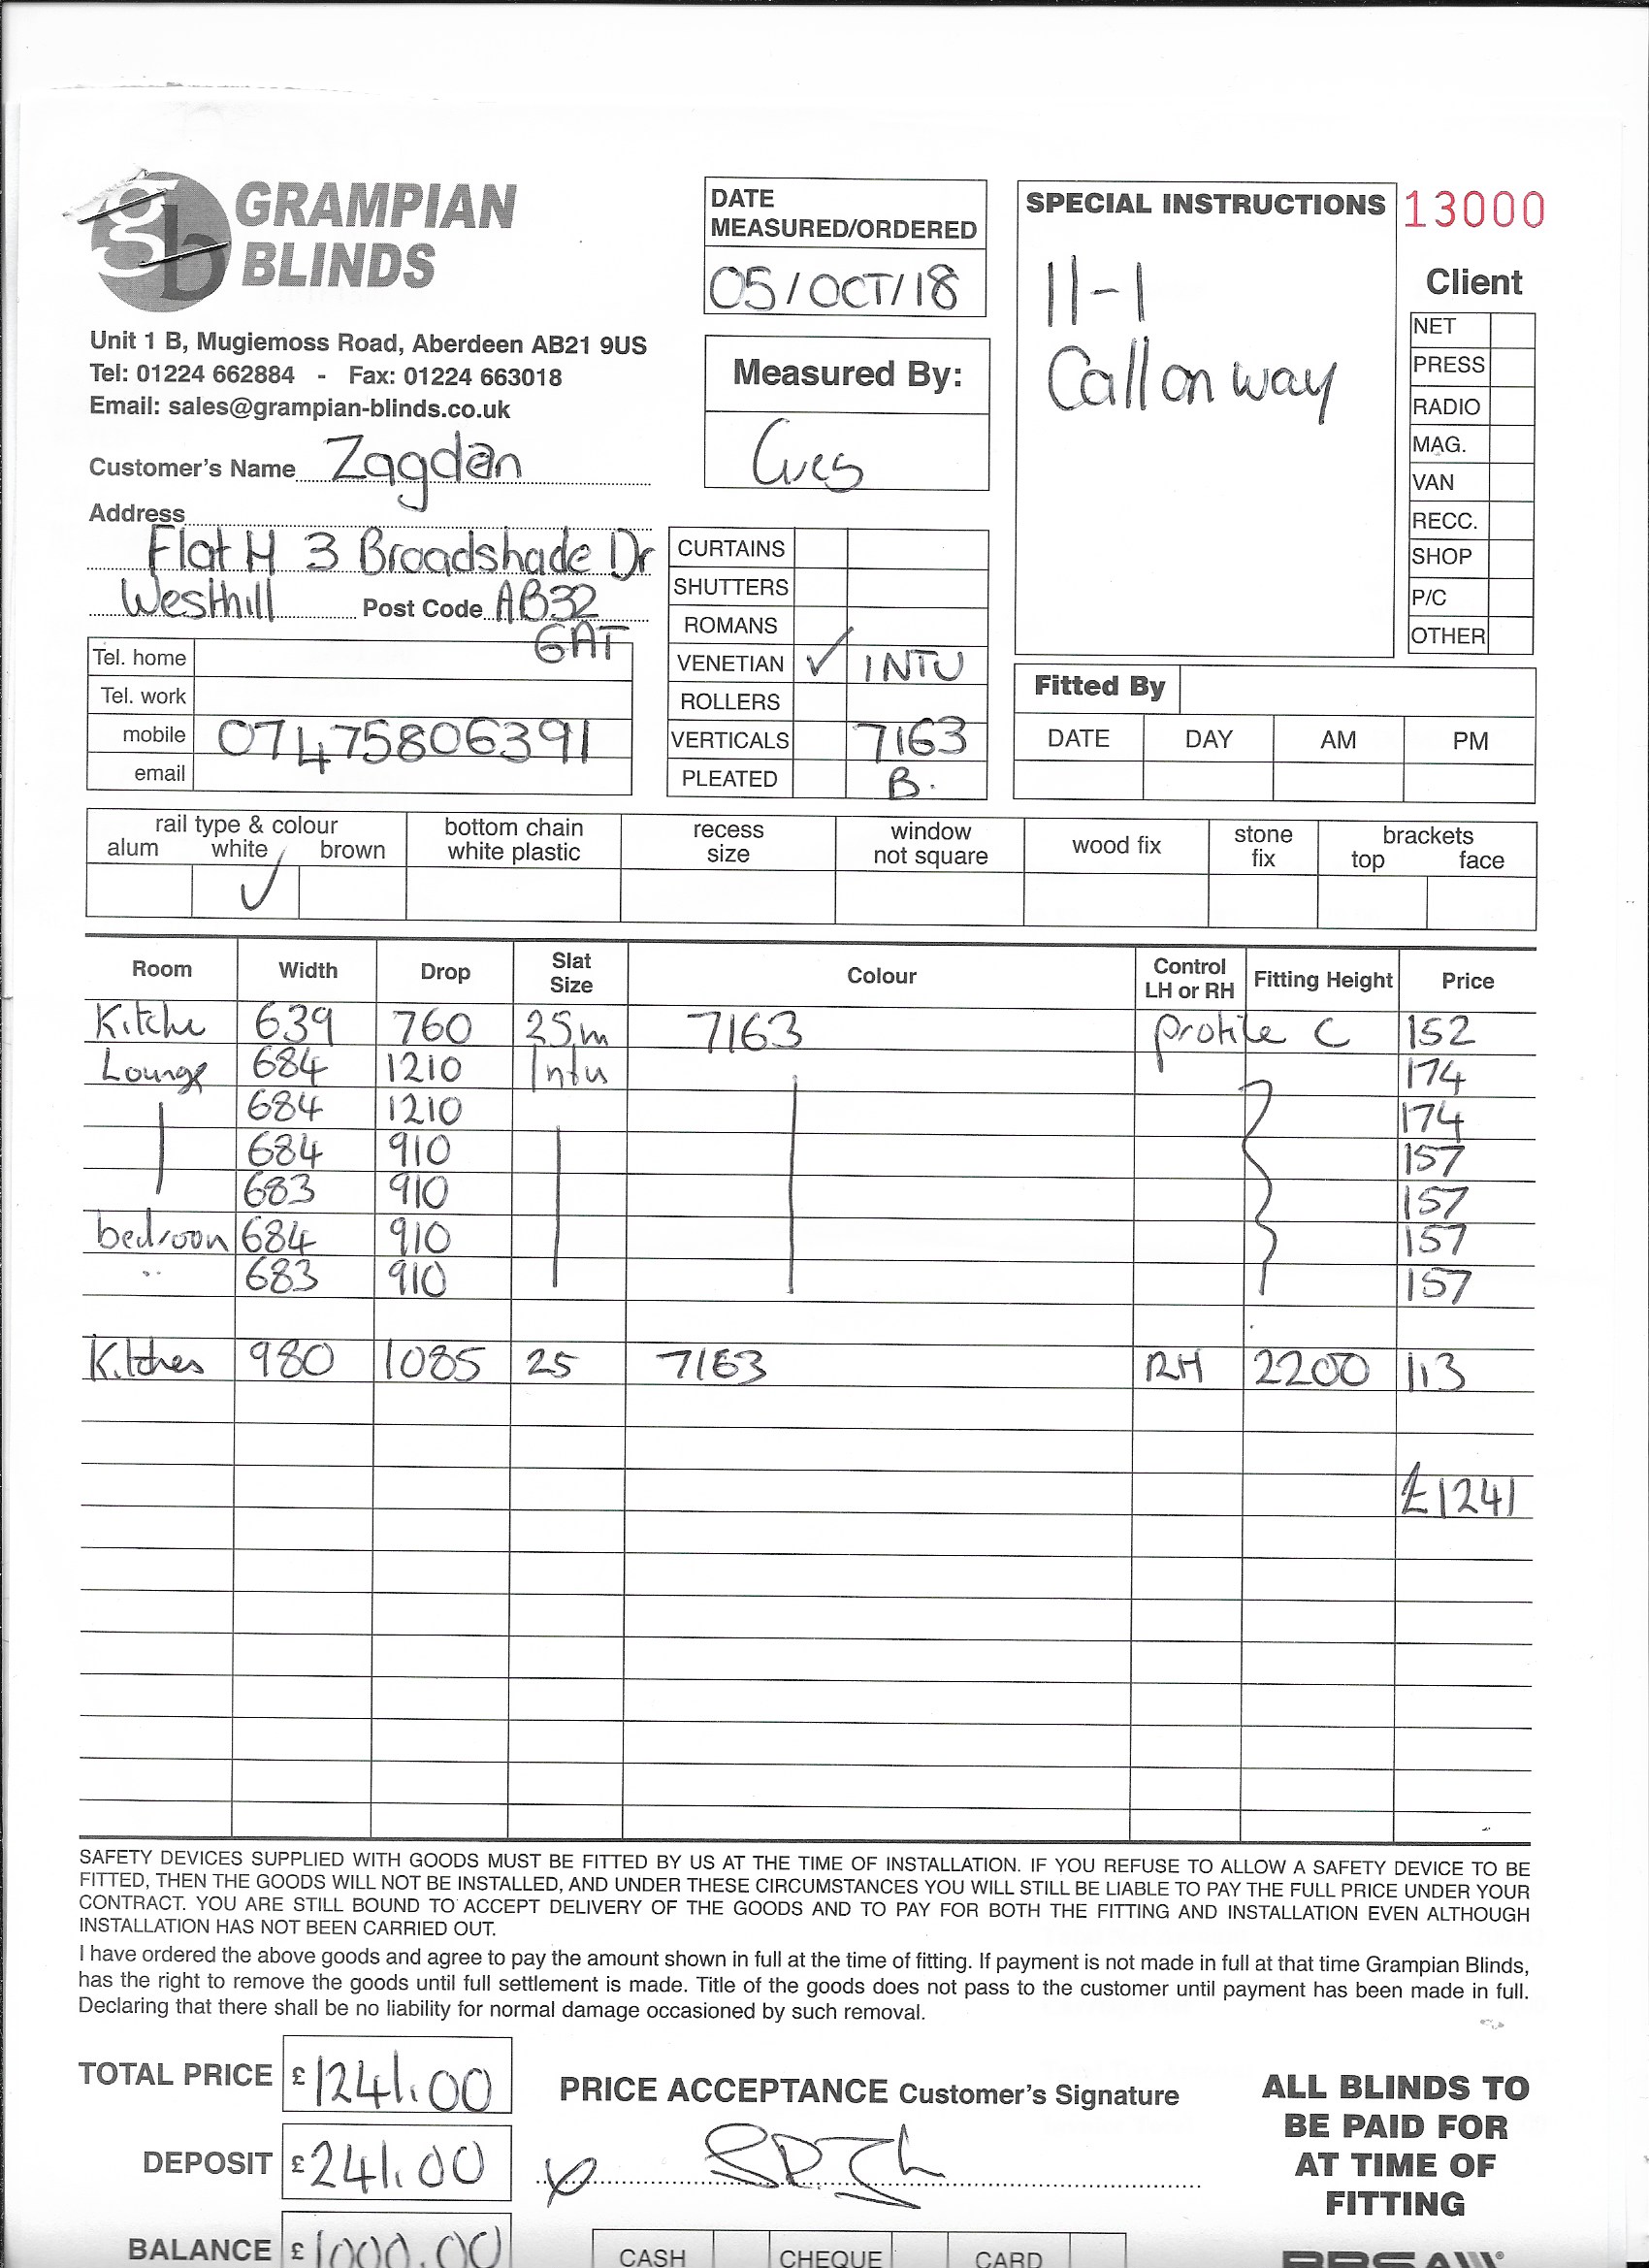 gb GRAMPIAN
BLINDS
Unit 1 B, Mugiemoss Road, Aberdeen AB21 9US
Tel: 01224 662884 - Fax: 01224 663018
Email: sales@grampian-blinds.co.uk
Customer's Name Zagdan
Address
Flat H 3 Broadshade Dr
Westhill Post Code AB32
6AT
Tel. home
Tel. work
mobile 07475806391
email
DATE
MEASURED/ORDERED
05/OCT/18
Measured By:
CURTAINS
SHUTTERS
ROMANS
VENETIAN ✓ INTU
ROLLERS
VERTICALS 7163
PLEATED B.
SPECIAL INSTRUCTIONS
11-1
Call on way
13000
Client
NET
PRESS
RADIO
MAG.
VAN
RECC.
SHOP
P/C
OTHER
Fitted By
DATE DAY AM PM
rail type & colour
alum white brown
✓
bottom chain
white plastic
recess
size
window
not square
wood fix
stone
fix
brackets
top face
Room Width Drop Slat Size Colour Control LH or RH Fitting Height Price
Kitche 639 760 25m 7163 profile C 152
Lounge 684 1210 Intu 174
684 1210 174
684 910 157
683 910 157
bedroom 684 910 157
" 683 910 157
Kitchen 980 1085 25 7163 RH 2200 113
£1241
SAFETY DEVICES SUPPLIED WITH GOODS MUST BE FITTED BY US AT THE TIME OF INSTALLATION. IF YOU REFUSE TO ALLOW A SAFETY DEVICE TO BE
FITTED, THEN THE GOODS WILL NOT BE INSTALLED, AND UNDER THESE CIRCUMSTANCES YOU WILL STILL BE LIABLE TO PAY THE FULL PRICE UNDER YOUR
CONTRACT. YOU ARE STILL BOUND TO ACCEPT DELIVERY OF THE GOODS AND TO PAY FOR BOTH THE FITTING AND INSTALLATION EVEN ALTHOUGH
INSTALLATION HAS NOT BEEN CARRIED OUT.
I have ordered the above goods and agree to pay the amount shown in full at the time of fitting. If payment is not made in full at that time Grampian Blinds,
has the right to remove the goods until full settlement is made. Title of the goods does not pass to the customer until payment has been made in full.
Declaring that there shall be no liability for normal damage occasioned by such removal.
TOTAL PRICE £1241.00
DEPOSIT £241.00
BALANCE £1000.00
PRICE ACCEPTANCE Customer's Signature
CASH CHEQUE CARD
ALL BLINDS TO
BE PAID FOR
AT TIME OF
FITTING